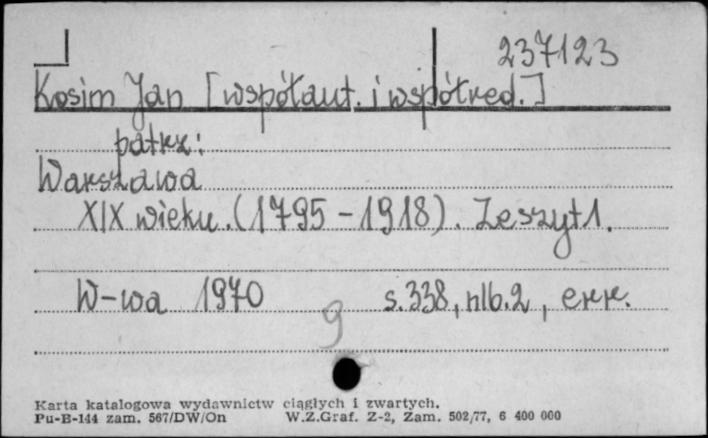 237123
Kosim Jan [współaut. i współred.]
patrz:
Warszawa
XIX wieku. (1795-1918). Zeszyt 1.
W-wa 1970 s. 338, nlb. 2, err.
9
Karta katalogowa wydawnictw ciągłych i zwartych.
Pu-B-144 zam. 567/DW/On W.Z.Graf. Z-2, Zam. 502/77, 6 400 000